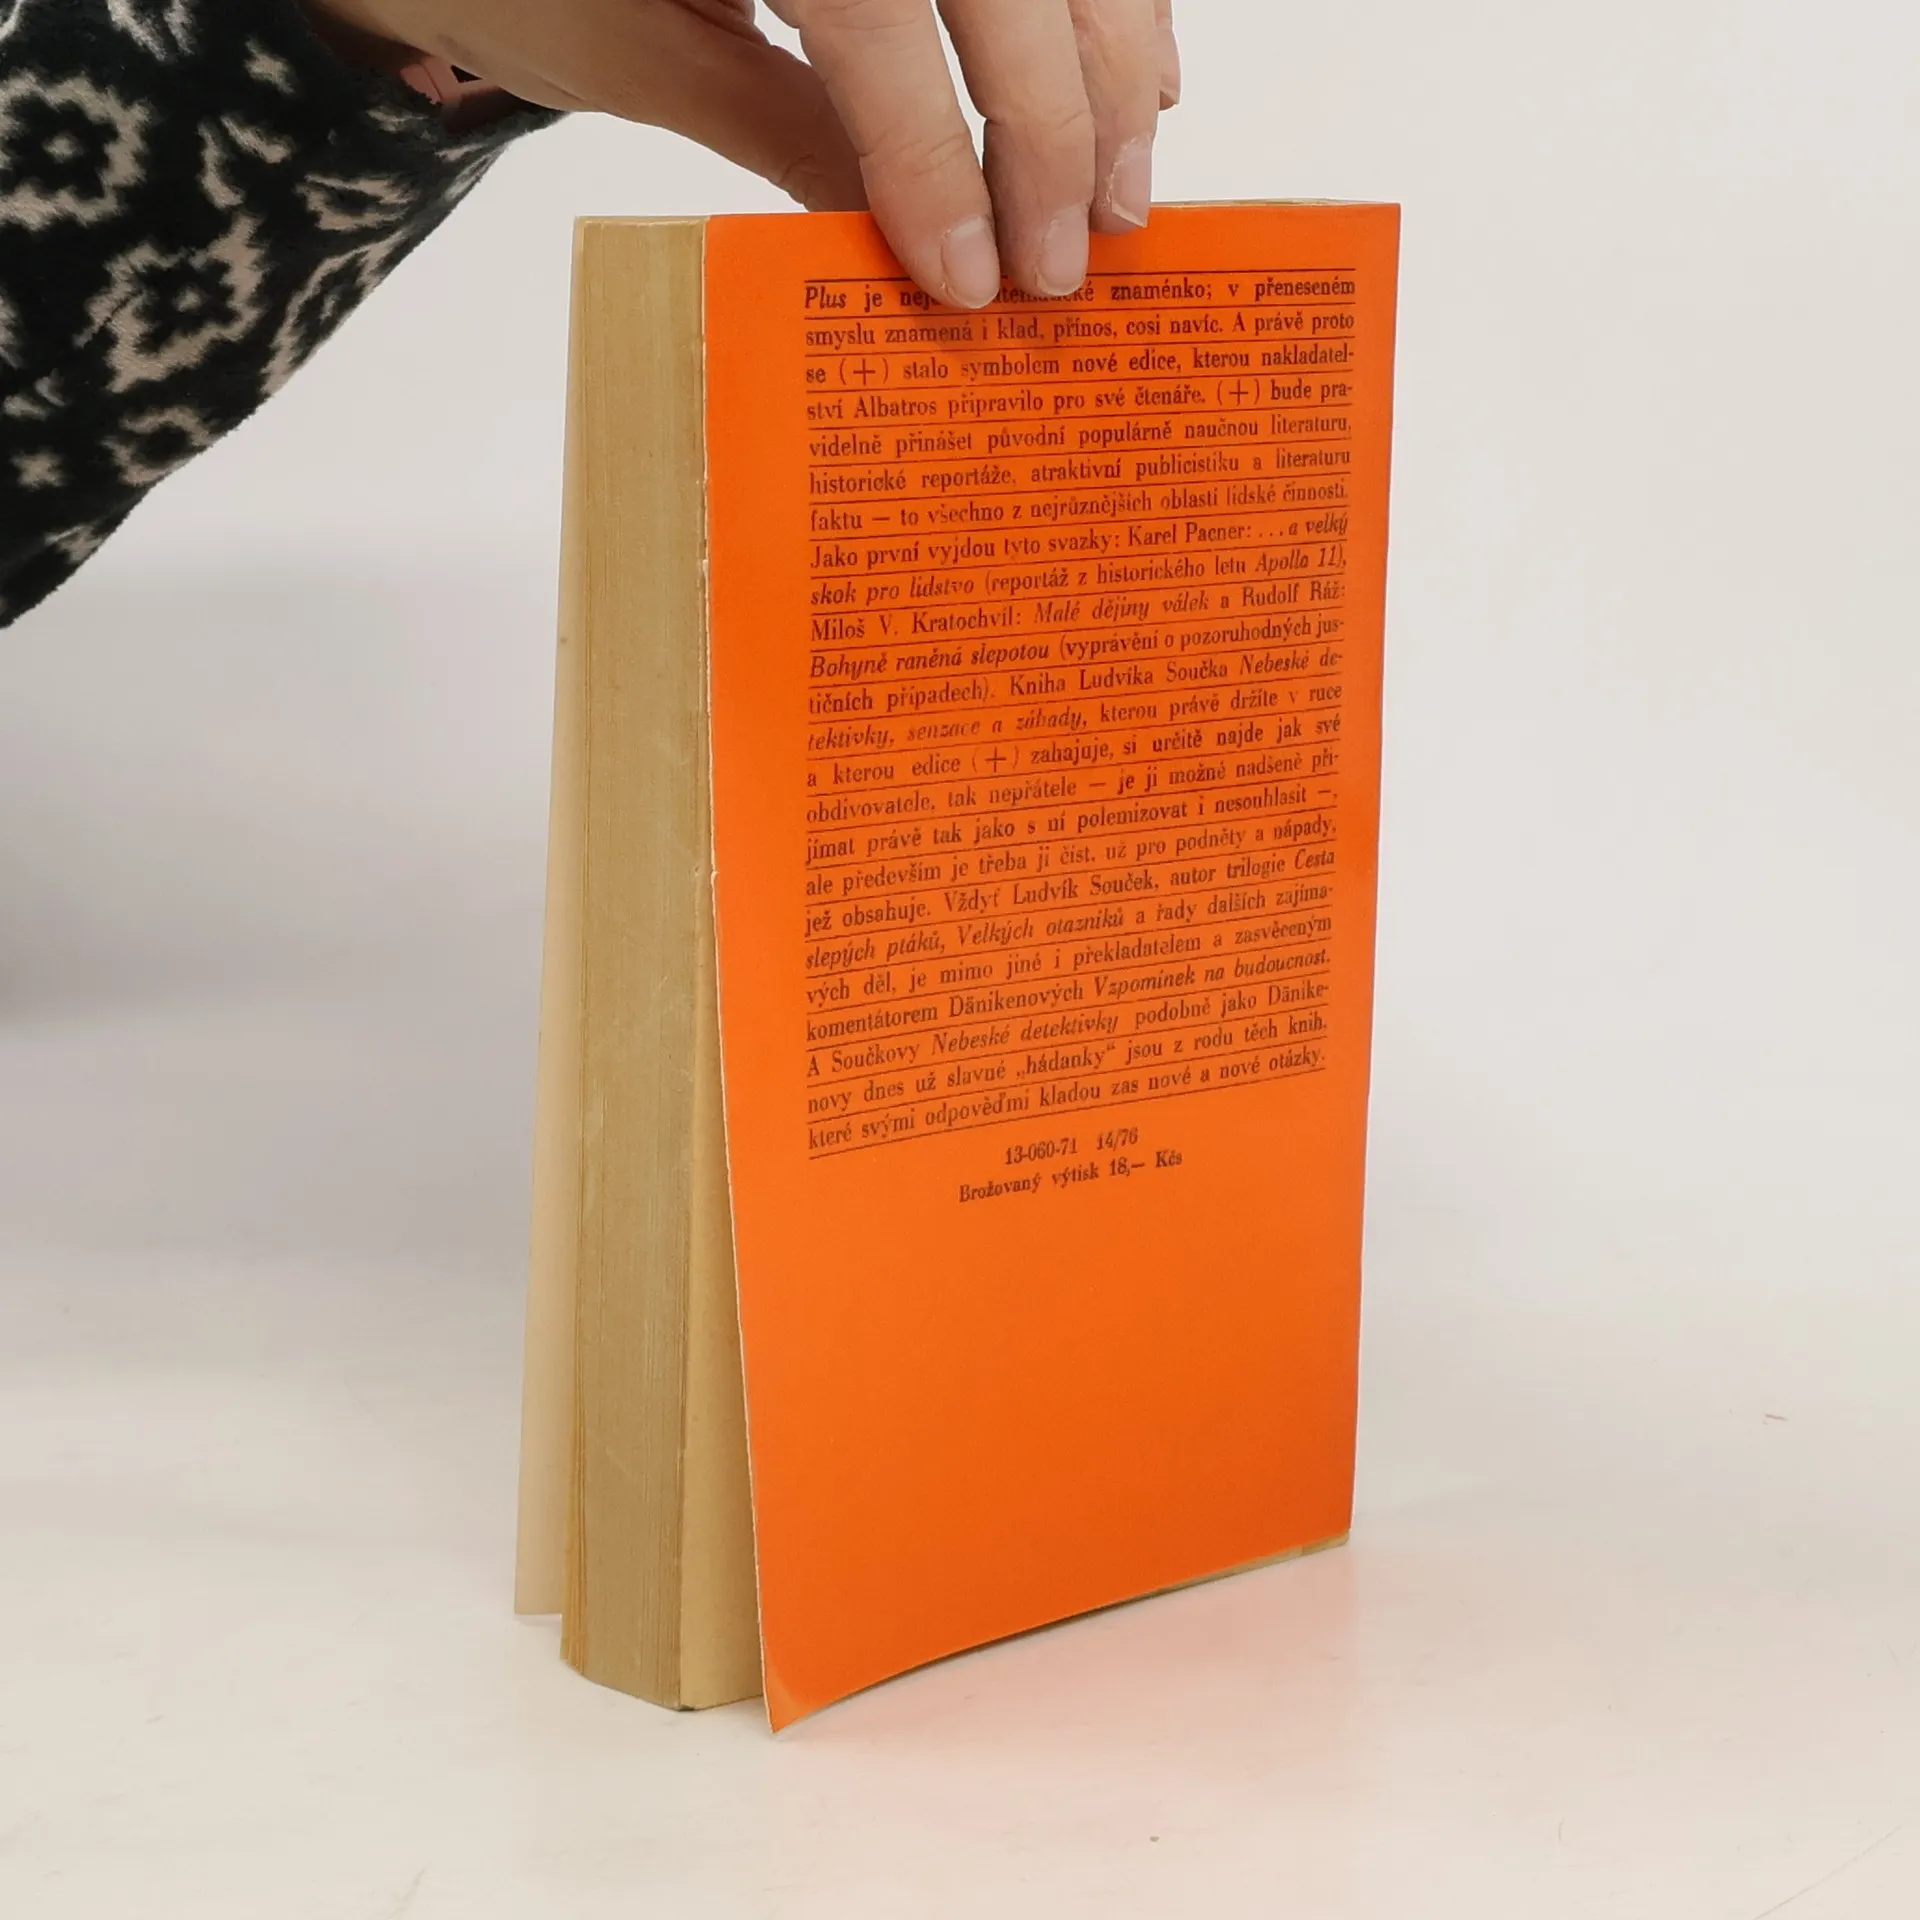 Plus je matematické znaménko; v přeneseném
smyslu znamená i klad, přínos, cosi navíc. A právě proto
se (+) stalo symbolem nové edice, kterou nakladatel-
ství Albatros připravilo pro své čtenáře. (+) bude pra-
videlně přinášet původní populárně naučnou literaturu,
historické reportáže, atraktivní publicistiku a literaturu
faktu — to všechno z nejrůznějších oblastí lidské činnosti.
Jako první vyjdou tyto svazky: Karel Pacner: ...a velký
skok pro lidstvo (reportáž z historického letu Apollo 11),
Miloš V. Kratochvíl: Malé dějiny válek a Rudolf Ráž:
Bohyně raněná slepotou (vyprávění o pozoruhodných jus-
tičních případech). Kniha Ludvíka Součka Nebeské de-
tektivky, senzace a záhady, kterou právě držíte v ruce
a kterou edice (+) zahajuje, si určitě najde jak své
obdivovatele, tak nepřátele — je ji možné nadšeně při-
jímat právě tak jako s ní polemizovat i nesouhlasit —,
ale především je třeba ji číst, už pro podněty a nápady,
jež obsahuje. Vždyť Ludvík Souček, autor trilogie Cesta
slepých ptáků, Velkých otazníků a řady dalších zajíma-
vých děl, je mimo jiné i překladatelem a zasvěceným
komentátorem Dänikenových Vzpomínek na budoucnost.
A Součkovy Nebeské detektivky podobně jako Dänike-
novy dnes už slavné „hádanky“ jsou z rodu těch knih,
které svými odpověďmi kladou zas nové a nové otázky.
13-060-71 14/76
Brožovaný výtisk 18,— Kčs